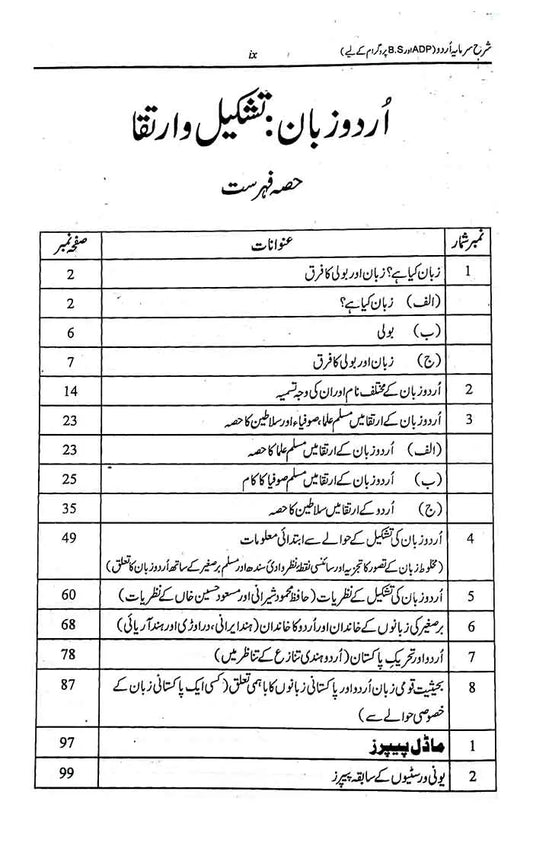 شرح سرمایہ اُردو (ADP اور B.S پروگرام کے لیے) ix
اُردو زبان: تشکیل و ارتقا
حصہ فہرست
نمبر شمار عنوانات صفحہ نمبر
1 زبان کیا ہے؟ زبان اور بولی کا فرق 2
(الف) زبان کیا ہے؟ 2
(ب) بولی 6
(ج) زبان اور بولی کا فرق 7
2 اُردو زبان کے مختلف نام اور ان کی وجہ تسمیہ 14
3 اُردو زبان کے ارتقا میں مسلم علما، صوفیاء اور سلاطین کا حصہ 23
(الف) اُردو زبان کے ارتقا میں مسلم علما کا حصہ 23
(ب) اُردو زبان کے ارتقا میں مسلم صوفیا کا کام 25
(ج) اُردو کے ارتقا میں سلاطین کا حصہ 35
4 اُردو زبان کی تشکیل کے حوالے سے ابتدائی معلومات 49
(مخلوط زبان کے تصور کا تجزیہ اور سائنسی نقطۂ نظر وادیٔ سندھ اور مسلم برصغیر کے ساتھ اُردو زبان کا تعلق)
5 اُردو زبان کی تشکیل کے نظریات (حافظ محمود شیرانی اور مسعود حسین خاں کے نظریات) 60
6 برصغیر کی زبانوں کے خاندان اور اُردو کا خاندان (ہند ایرانی، دراوڑی اور ہند آریائی) 68
7 اُردو اور تحریکِ پاکستان (اُردو ہندی تنازع کے تناظر میں) 78
8 بحیثیت قومی زبان اُردو اور پاکستانی زبانوں کا باہمی تعلق (کسی ایک پاکستانی زبان کے 87
خصوصی حوالے سے)
1 ماڈل پیپرز 97
2 یونی ورسٹیوں کے سابقہ پیپرز 99